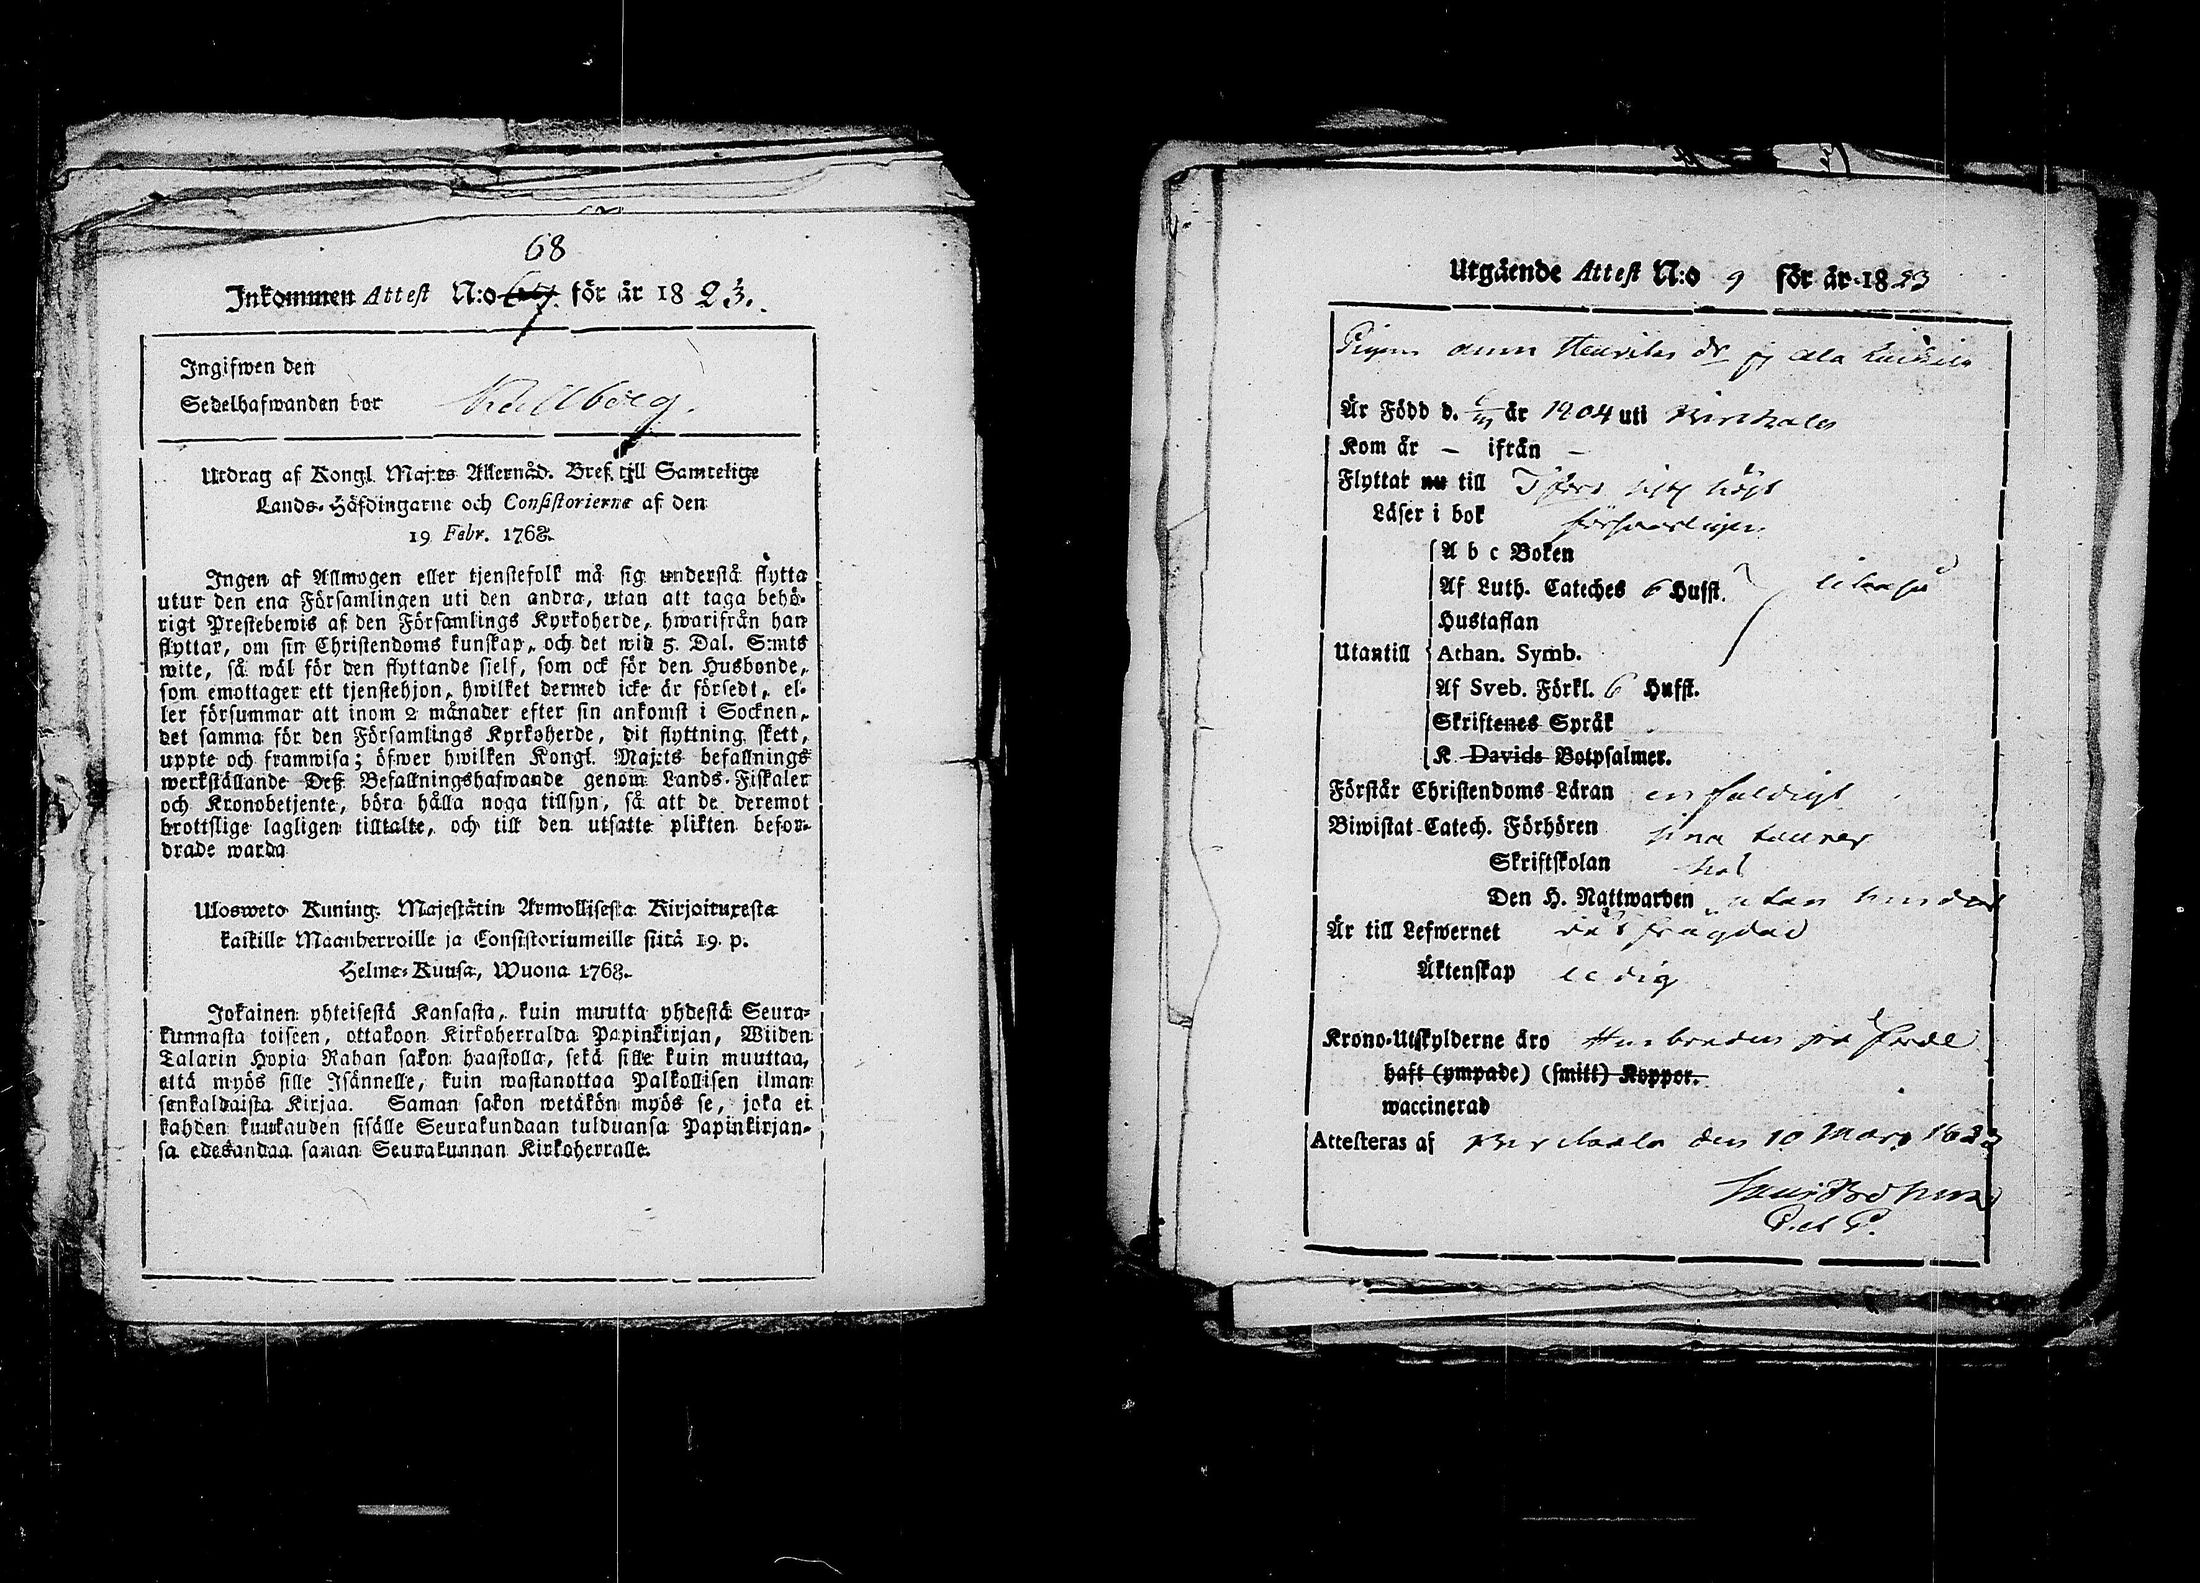 68
Inkommen Attest N:o för år 1823.
Ingifwen den
Sedelhafwanden bor Källberg.
Utdrag af Kongl. Maj:ts Allernåd. Bref till Samtelige
Lands-Höfdingarne och Consistorierne af den
19 Febr. 1768.
Ingen af Allmogen eller tjenstefolk må sig understå flytta
utur den ena Församlingen uti den andra, utan att taga behö-
rigt Prestebewis af den Församlings Kyrkoherde, hwarifrån han
flyttar, om sin Christendoms kunskap, och det wid 5. Dal. S:mts
wite, så wäl för den flyttande sielf, som ock för den Husbonde,
som emottager ett tjenstehjon, hwilket dermed icke är försedt, el-
ler försummar att inom 2 månader efter sin ankomst i Socknen,
det samma för den Församlings Kyrkoherde, dit flyttning skett,
uppte och framwisa; öfwer hwilken Kongl. Maj:ts befallnings
werkställande Deß Befallningshafwande genom Lands-Fiskaler
och Kronobetjente, böra hålla noga tillsyn, så att de deremot
brottslige lagligen tilltalte, och till den utsatte plikten befor-
drade warda
Ulosweto Kuning. Majestätin Armollisesta Kirjoituxesta
kaikille Maanherroille ja Consistoriumeille siitä 19. p.
Helme-Kuusa, Wuona 1768.
Jokainen yhteisestä Kansasta, kuin muutta yhdestä Seura-
kunnasta toiseen, ottakoon Kirkoherralda Papinkirjan, Wiiden
Talarin Hopia Rahan sakon haastolla, sekä sille kuin muuttaa,
että myös sille Isännelle, kuin wastanottaa Palkollisen ilman
senkaldaista Kirjaa. Saman sakon wetäkön myös se, joka ei
kahden kuukauden sisälle Seurakundaan tulduansa Papinkirjan-
sa edesandaa saman Seurakunnan Kirkoherralle.
Utgående Attest N:o 9 för år 1823
Pigan Anna Henriks dr fr Ala
Är Född d. år 1804 uti Birckala
Kom år – ifrån –
Flyttar nu till
Läser i bok försvarligen
A b c Boken
Af Luth. Cateches 6 Hufst.
Hustaflan
Utantill Athan. Symb.
Af Sveb. Förkl. 6 Hufst.
Skriftenes Språk
K. Davids Botpsalmer.
Förstår Christendoms Läran enfaldigt
Biwistat Catech. Förhören sina
Skriftskolan
Den H. Nattwarden utan hinder
Är till Lefwernet
Äktenskap ledig
Krono-Utskylderne äro Husbonden
haft (ympade) (smitt) Koppor.
waccinerad
Attesteras af Birckala den 10 Mars 1823